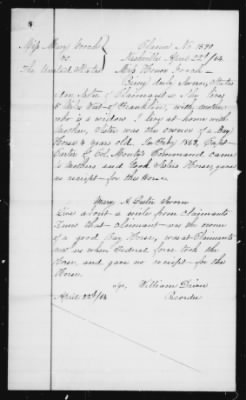 Miss Mary Crouch
vs
The United States
Claim No 1590
Nashville April 22d/64
Miss Crouch
Being duly Sworn, States
am Sister of Claimant & She lives
8 Mils West of Franklin, with mother
who is a widow I live at home with
mother, Sister was the owner of a Bay
Horse 4 years old. In Feby 1863, Capt
Carter of Col. Command Came
to mothers and took Sisters Horse, gave
no receipt for the Horse
Mary A. Lester Sworn
Live about a mile from Claimants
Know that claimant was the owner
of a good Bay Horse, was at Claimants
when Federal force took the
Horse and gave no receipt for the
Horse.
William Dixon
Recorder
April 22d/64